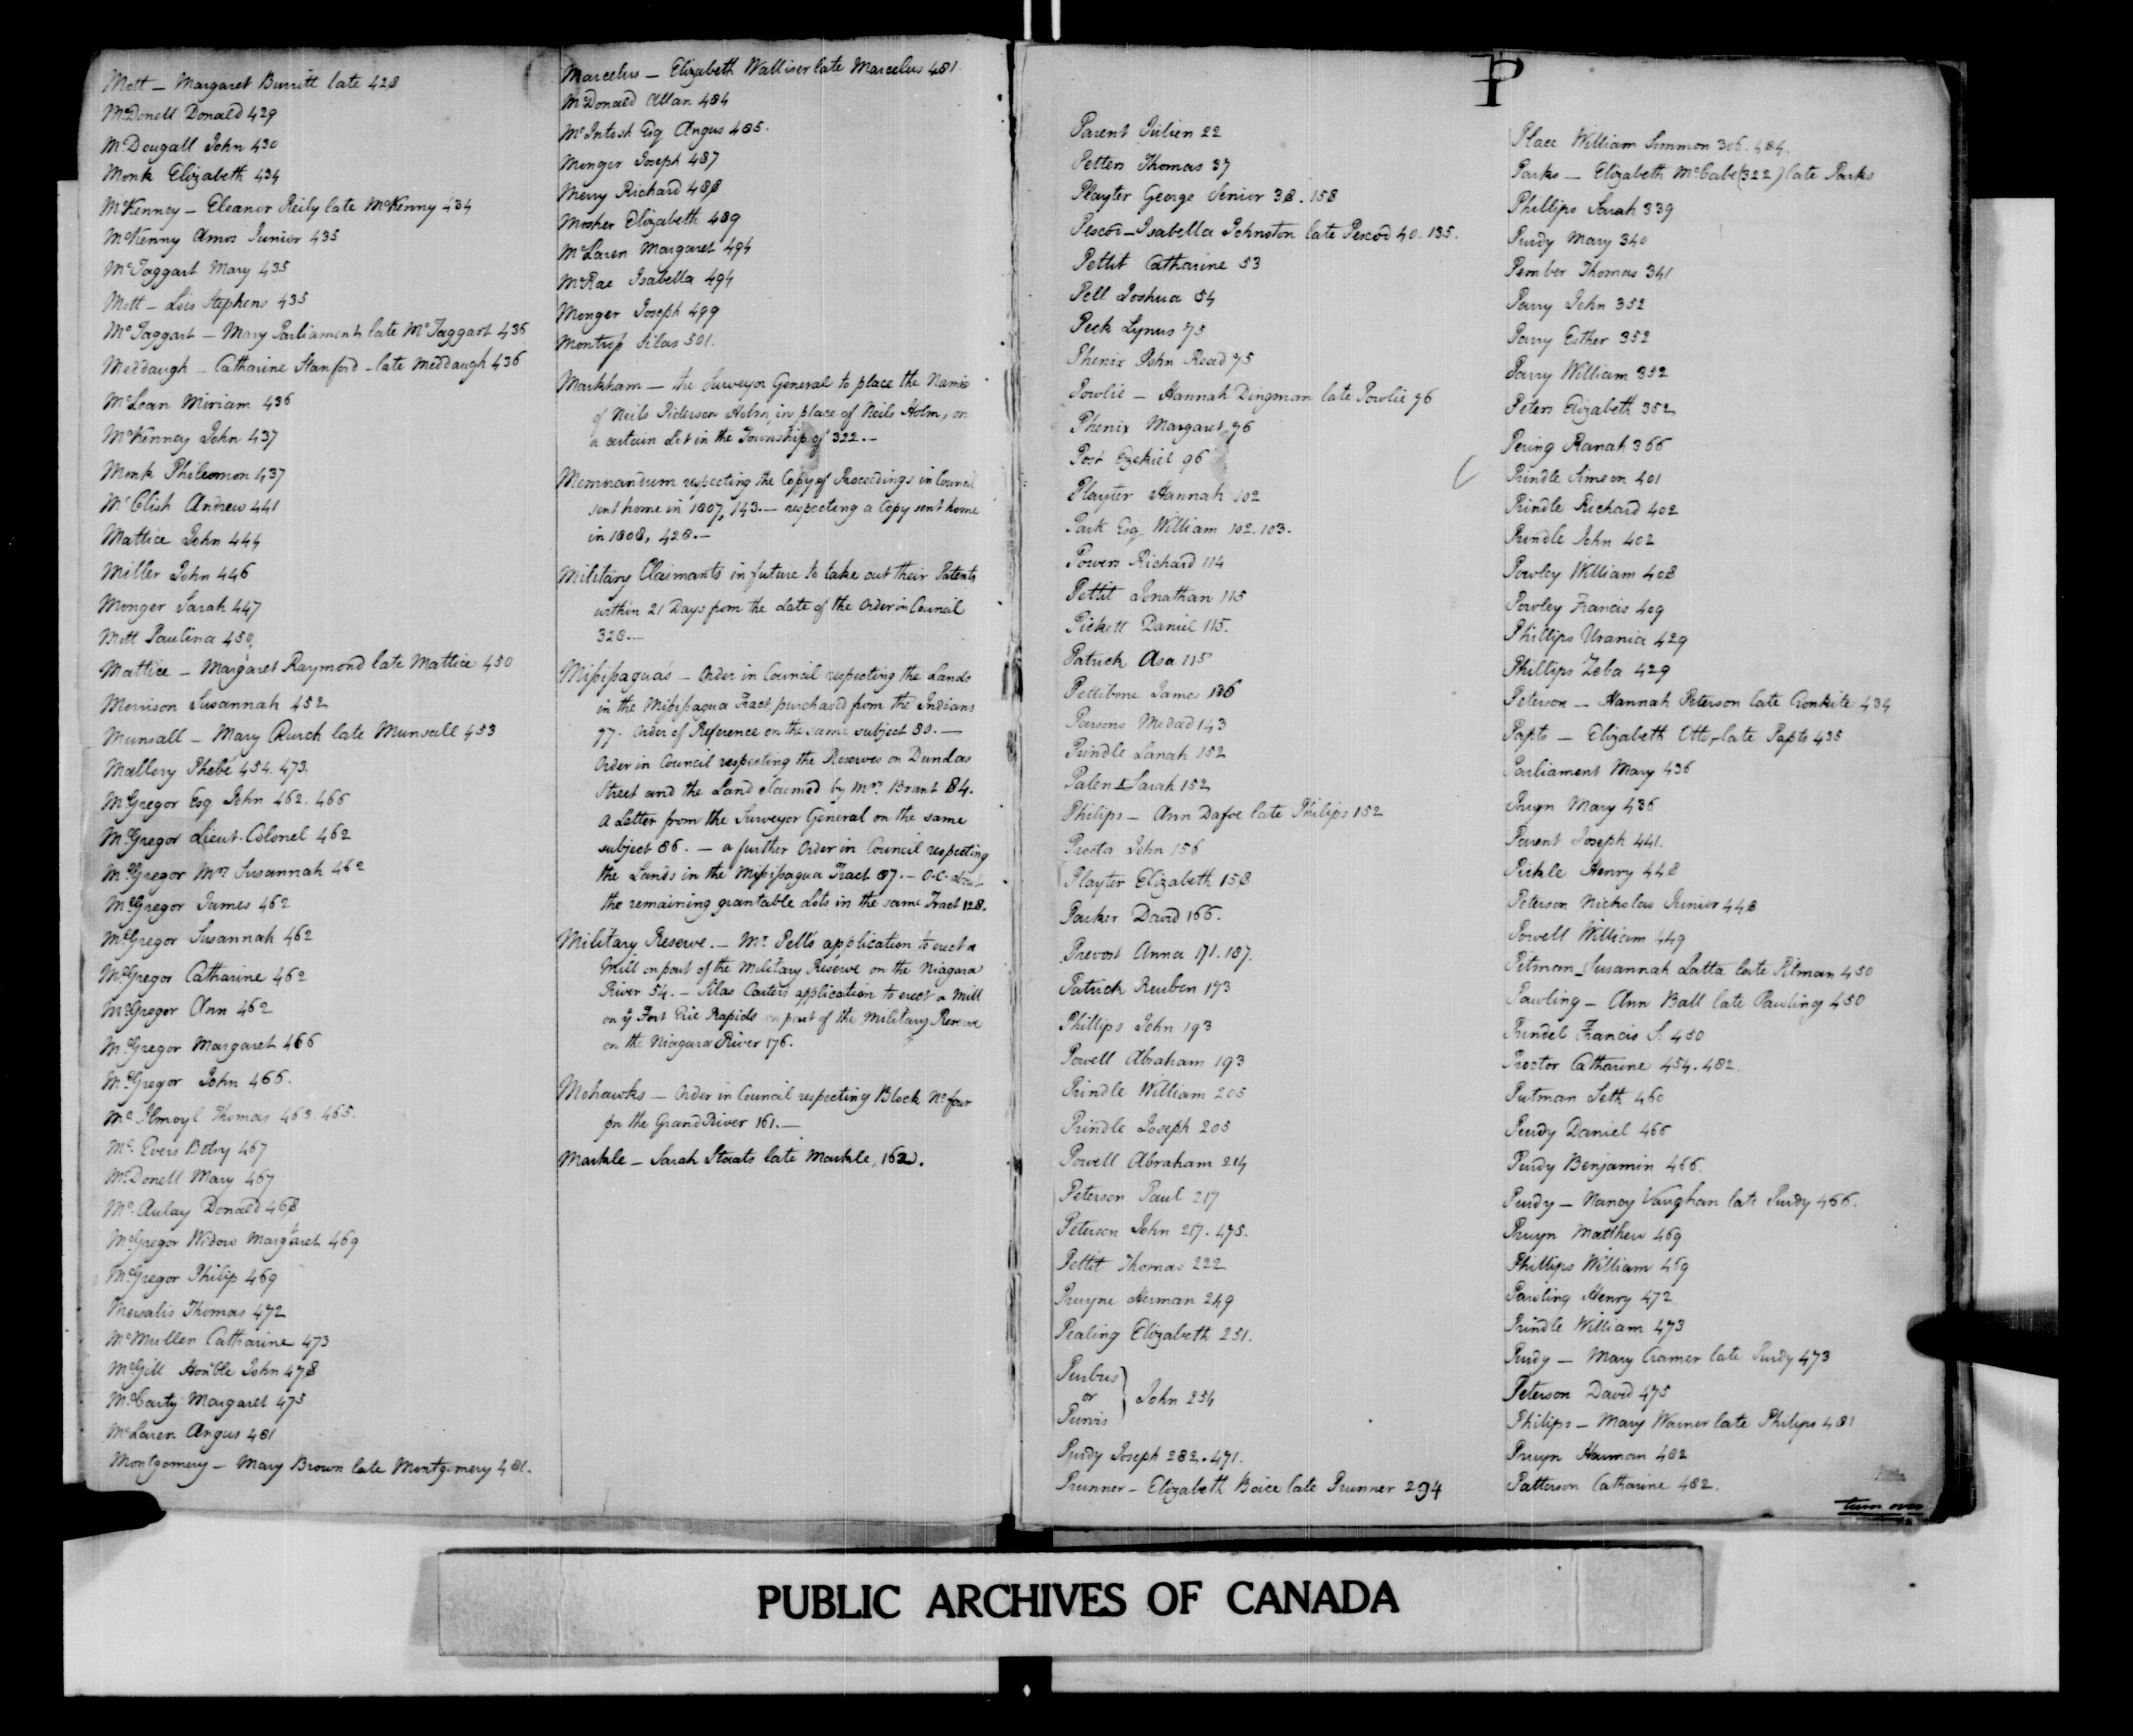 Mott — Margaret Burritt late 428
McDonell Donald 429
McDougall John 430
Monk Elizabeth 434
McKenney — Eleanor Reily late McKenny 434
McKenny Amos Junior 435
McTaggart Mary 435
Mott — Lois Stephens 435
McTaggart — Mary Parliament late McTaggart 436
Meddaugh — Catharine Stanford — late Meddaugh 436
McLean Miriam 436
McKenney John 437
Monk Philemon 437
McClish Andrew 441
Mattice John 444
Miller John 446
Monger Sarah 447
Mott Paulina 450
Mattice — Margaret Raymond late Mattice 450
Morrison Susannah 452
Munsall — Mary Church late Munsall 453
Mallery Phebe 454. 473.
McGregor Esq John 462. 466
McGregor Lieut. Colonel 462
McGregor Mrs Susannah 462
McGregor James 462
McGregor Susannah 462
McGregor Catharine 462
McGregor Ann 462
McGregor Margaret 466
McGregor John 466.
McIlmoyl Thomas 463. 465.
McEvers Betsy 467
McDonell Mary 467
McAulay Donald 468
McGregor Widow Margaret 469
McGregor Philip 469
Mersalis Thomas 472
McMullen Catharine 473
McGill Honble John 478
McCarty Margaret 475
McLaren Angus 481
Montgomery — Mary Brown late Montgomery 481.
Marcelus — Elizabeth Walliser late Marcelus 481
McDonald Allan 484
McIntosh Esq Angus 485.
Monger Joseph 487
Merry Richard 488
Mosher Elizabeth 489
McLaren Margaret 494
McRae Isabella 494
Monger Joseph 499
Montrop Silas 501.
Markham — the Surveyor General to place the Name
of Neils Piderson Holm, in place of Neils Holm, on
a certain Lot in the Township of 322.—
Memorandum respecting the Copy of Proceedings in Council
sent home in 1807, 143.— respecting a Copy sent home
in 1808, 428.—
Military Claimants in future to take out their Patents
within 21 Days from the date of the Order in Council
328.—
Missisagua's — Order in Council respecting the Lands
in the Missisagua Tract, purchased from the Indians
77. Order of Reference on the same subject 80.—
Order in Council respecting the Reserves on Dundas
Street and the Land claimed by Mrs. Brant 84.
A Letter from the Surveyor General on the same
subject 86. — a further Order in Council respecting
the Lands in the Missisagua Tract 87.— O.C. about
the remaining grantable Lots in the same Tract 128.
Military Reserve.— Mr. Pell's application to erect a
Mill on part of the Military Reserve on the Niagara
River 54. — Silas Carters application to erect a Mill
on ye Fort Erie Rapids on part of the Military Reserve
on the Niagara River 176.
Mohawks — Order in Council respecting Block No four
on the Grand River 161.—
Markle — Sarah Staats late Markle, 162.
P
Parent Julien 22
Petters Thomas 37
Playter George Senior 38. 158
Pescod — Isabella Johnston late Pescod 40. 135.
Pettit Catharine 53
Pell Joshua 54
Peck Lynus 75
Phenix John Read 75
Powlie — Hannah Dingman late Powlie 96
Phenix Margaret 96
Post Ezekiel 96
Playter Hannah 102
Park Esq. William 102. 103.
Powers Richard 114
Pettit Jonathan 115
Pickett Daniel 115.
Patrick Asa 115
Pettibone James 136
Parsons Medad 143
Prindle Lanah 152
Palen Sarah 152
Philips — Ann Dafoe late Philips 152
Proctor John 156
Playter Elizabeth 158
Parker David 166.
Prevost Anna 171. 187.
Patrick Reuben 173
Phillips John 193
Powell Abraham 193
Prindle William 205
Prindle Joseph 205
Powell Abraham 214
Peterson Paul 217
Peterson John 217. 475.
Pettit Thomas 222
Pruyne Herman 249
Pealing Elizabeth 251.
Purbus
or
Purvis
John 254
Purdy Joseph 282. 471.
Prunner — Elizabeth Boice late Prunner 294
Place William Simmon 306. 484.
Parks — Elizabeth McCabe (322) late Parks
Phillips Sarah 339
Purdy Mary 340
Pember Thomas 341
Parry John 352
Parry Esther 352
Parry William 352
Peters Elizabeth 352
Pering Ranah 366
Prindle Simeon 401
Prindle Richard 402
Prindle John 402
Powley William 408
Powley Francis 409
Phillips Urania 429
Phillips Zeba 429
Peterson — Hannah Peterson late Conkite 434
Papts — Elizabeth Otto, late Papts 435
Parliament Mary 436
Pruyn Mary 436
Parent Joseph 441.
Pickle Henry 448
Peterson Nicholas Junior 448
Powell William 449
Pitman — Susannah Latta late Pitman 450
Pawling — Ann Ball late Pawling 450
Prindel Francis S. 450
Proctor Catharine 454. 482.
Putman Seth 460
Purdy Daniel 466
Purdy Benjamin 466.
Purdy — Nancy Vaughan late Purdy 466.
Pruyn Matthew 469
Phillips William 469
Pawling Henry 472
Prindle William 473
Purdy — Mary Cramer late Purdy 473
Peterson David 475
Philips — Mary Warner late Philips 481
Pruyn Harman 482
Patterson Catharine 482.
turn over
PUBLIC ARCHIVES OF CANADA